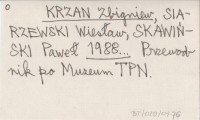 KRZAN Zbigniew, SIA-
RZEWSKI Wiesław, SKAWIŃ-
SKI Paweł 1988... Przewod-
nik po Muzeum TPN.